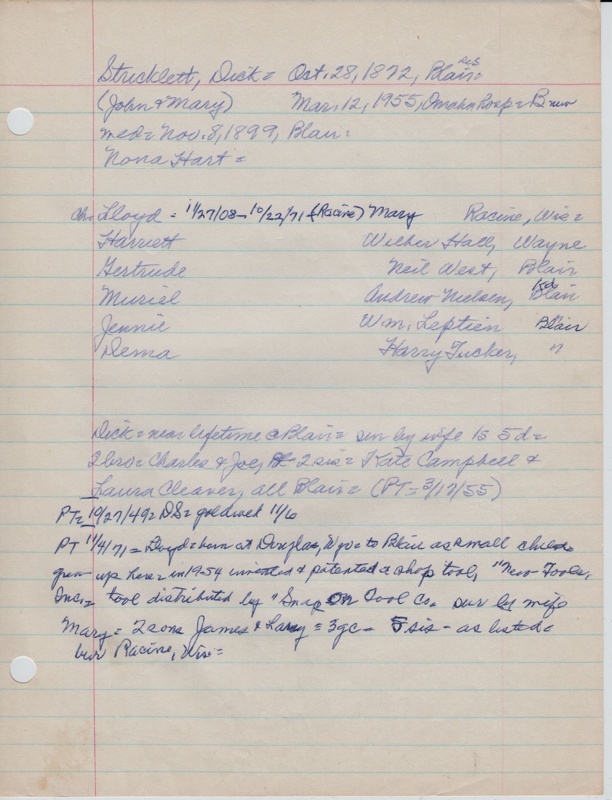 Stricklett, Dick = Oct. 28, 1872, Blair = res
(John & Mary) Mar. 12, 1955, Omaha Hosp = B
med = Nov. 8, 1899, Blair =
Nona Hart =
ch = Lloyd = 11/27/08 - 10/22/71 (Racine) Mary Racine, Wis =
Harriett Wilber Hall, Wayne
Gertrude Neil West, Blair
Muriel Andrew Nielsen, Blair
Jennie Wm. Leptien Blair
Dema Harry Tucker, "
Dick = near lifetime @ Blair = sur by wife 1s 5d =
2 bro = Charles & Joe, Bl = 2 sis = Kate Campbell &
Laura Cleaver, all Blair = (PT = 3/17/55)
PT = 10/27/49 = DS = gold wed 11/6
PT 11/4/71 = Lloyd = born at Douglas, Wyo = to Blair as small child =
grew up here = in 1954 invented & patented a shop tool, "New Tools,
Inc, = tool distributed by "Snap On Tool Co = sur by wife
Mary = 2 sons James & Larry = 3gc = 5 sis - as listed =
bur Racine, Wis =